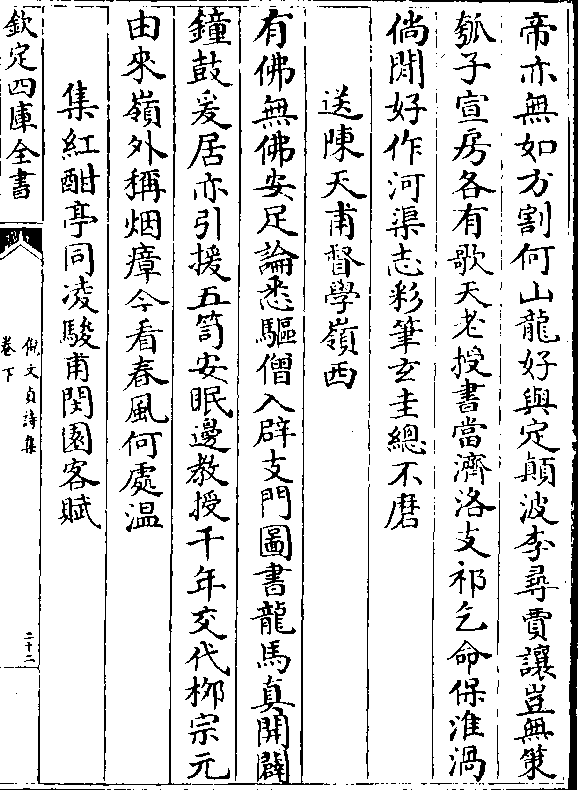 帝亦無如方割何山龍好與定顛波李尋賈讓豈無策
瓠子宣房各有歌天老授書當濟洛支祁乞命保淮渦
倘閒好作河渠志彩筆玄圭總不磨
送陳天甫督學嶺西
有佛無佛安足論悉驅僧入辟支門圖書龍馬真開闢
鐘鼓爰居亦引援五笥安眠邊教授千年交代栁宗元
由來嶺外稱烟瘴今看春風何處温
集紅酣亭同凌駿甫閏園客賦
欽定四庫全書
倪文貞詩集
卷下
二十二